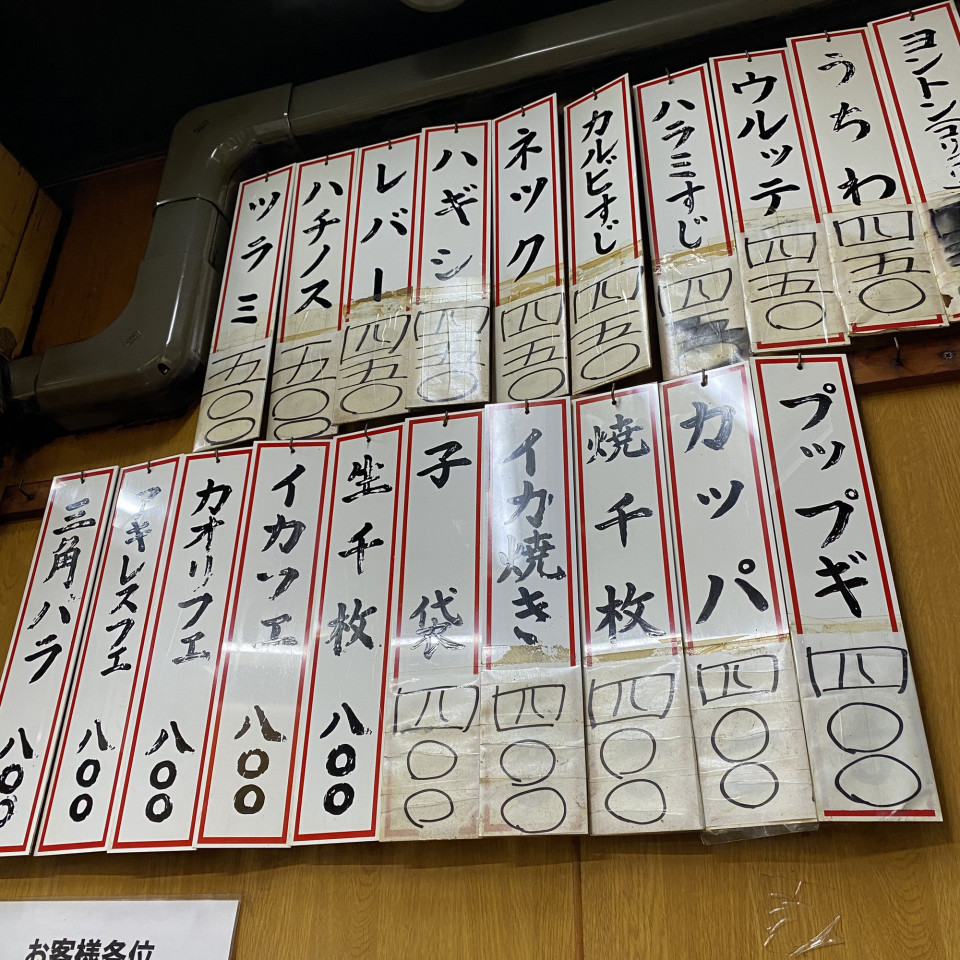 ヨントンコリ
うちわ 四五〇
ウルッテ 四五〇
ハラミすじ 四
カルビすじ 四五〇
ネック 四五〇
ハギシ 四五〇
レバー 四五〇
ハチノス 五〇〇
ツラミ 五〇〇
プップギ 四〇〇
カッパ 四〇〇
焼千枚 四〇〇
イカ焼き 四〇〇
子袋 四〇〇
生千枚 八〇〇
イカフエ 八〇〇
カオリフエ 八〇〇
アキレスフエ 八〇〇
三角バラ 八〇〇
お客様各位